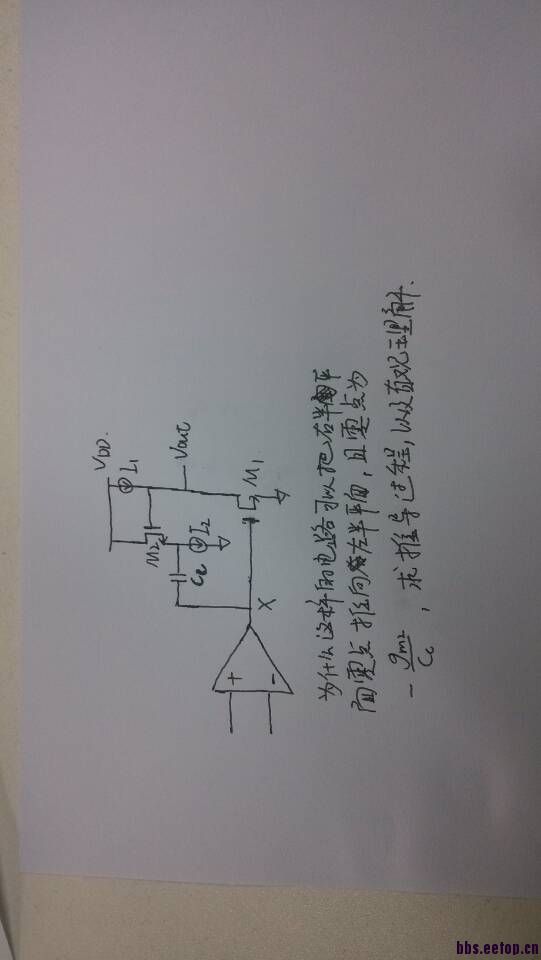 VDD
I1
Vout
M2
I2
Cc
M1
X
+
-
为什么这样的电路可以把右半平
面零点推向左半平面,且零点为
- gm2/Cc , 求推导过程,以及直观理解.
bbs.eetop.cn